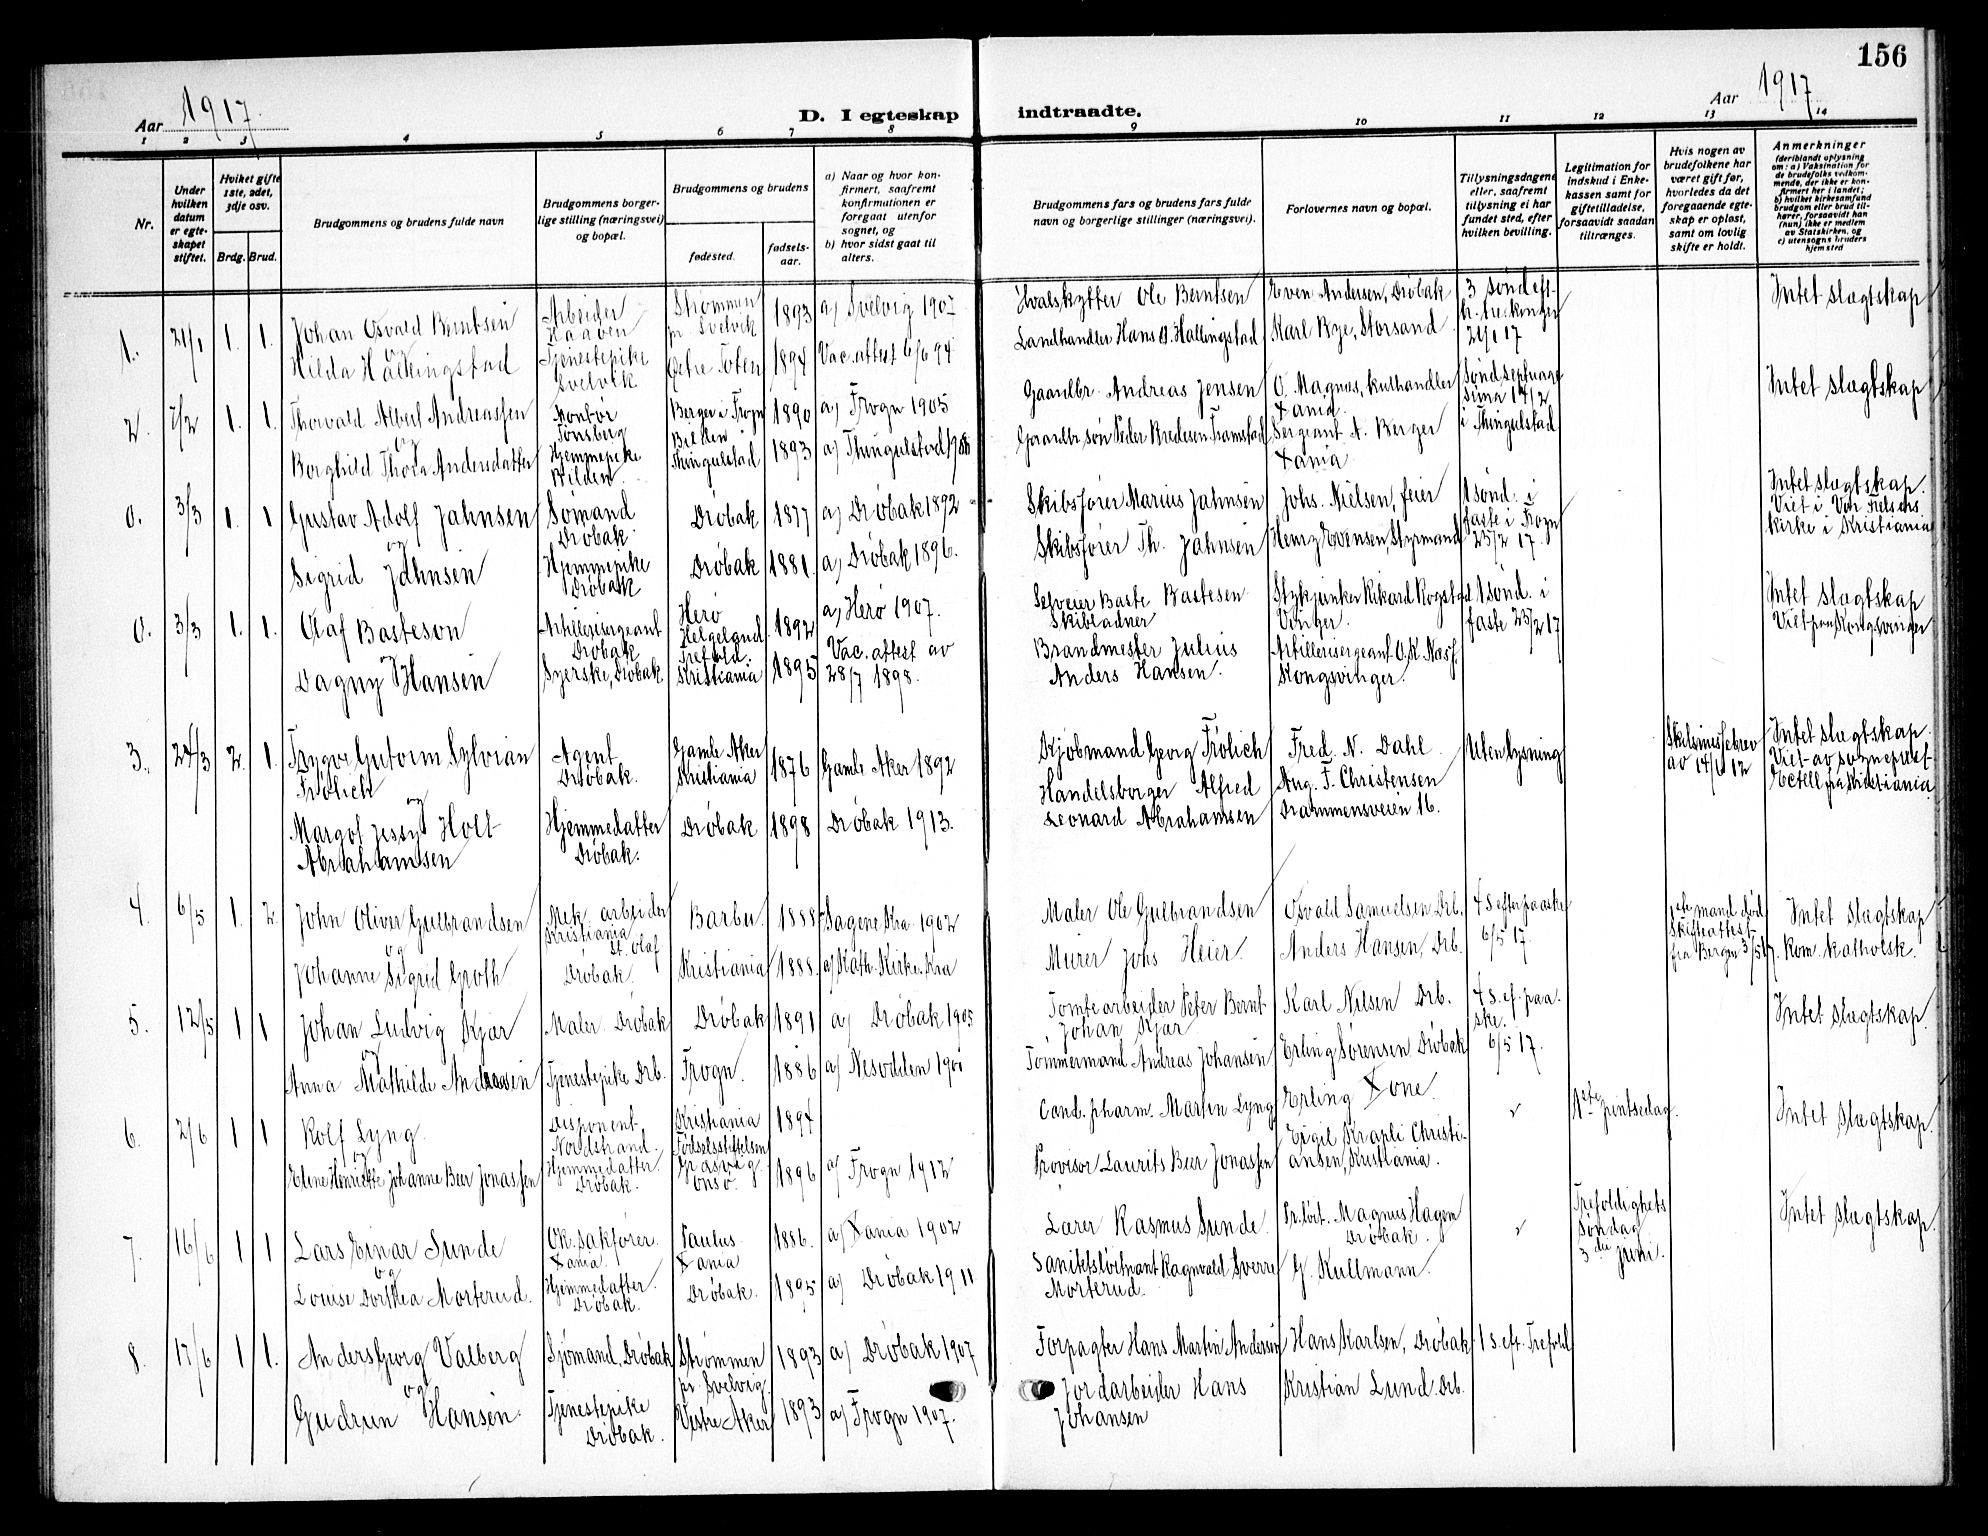 156
Aar 1917.
D. I egteskap indtraadte.
Aar 1917
1 2 3 4 5 6 7 8 9 10 11 12 13 14
Nr.
Under hvilken datum er egteskapet stiftet.
Hvilket gifte 1ste, 2det, 3dje osv.
Brdg. Brud.
Brudgommens og brudens fulde navn
Brudgommens borgerlige stilling (næringsvei) og bopæl.
Brudgommens og brudens
fødested.
fødselsaar.
a) Naar og hvor konfirmert, saafremt konfirmationen er foregaat utenfor sognet, og
b) hvor sidst gaat til alters.
Brudgommens fars og brudens fars fulde navn og borgerlige stillinger (næringsvei).
Forlovernes navn og bopæl.
Tillysningsdagene eller, saafremt tillysning ei har fundet sted, efter hvilken bevilling.
Legitimation for indskud i Enkekassen samt for giftetilladelse, forsaavidt saadan tiltrænges.
Hvis nogen av brudefolkene har været gift før, hvorledes da det foregaaende egteskap er opløst, samt om lovlig skifte er holdt.
Anmerkninger
(deriblandt oplysning om: a) Vaksination for de brudefolks vedkommende, der ikke er konfirmert her i landet; b) hvilket kirkesamfund brudgom eller brud tilhører, forsaavidt han (hun) ikke er medlem av Statskirken, og c) utensogns bruders hjemsted
1. 21/1 1. 1. Johan Osvald Berntsen Arbeider Strømmen pr Svelvik 1893 a) Svelvig 1907 Hvalskytter Ole Berntsen Even Andersen, Drøbak 21/1 17 Intet slægtskap
og
Hilda Hallingstad Tjenestepike Svelvik Østre Toten 1894 Vac. attest 6/6 94 Landhandler Hans O. Hallingstad Karl Bye, Storsand
2. 7/2 1. 1. Thorvald Albert Andreassen Montør Tønsberg Berger i Frogn 1890 a) Frogn 1905 Gaardbr. Andreas Jensen O. Magnus, kulhandler Xania 14/2 i Thingulstad Intet slægtskap
og
Borghild Thora Andersdatter Hjemmepike Bilden Bilden Thingulstad 1893 a) Thingulstad Gaardbr.søn Peder Bredesen Framstad Sergeant A. Berger Xania
0. 3/3 1. 1 Gustav Adolf Jahnsen Sømand Drøbak Drøbak 1877 a) Drøbak 1892 Skibsfører Marius Jahnsen Johs. Nielsen, feier 1 sønd. i faste i Frogn 25/2 17. Intet slægtskap. Viet i Vor Frelsers kirke i Kristiania
og
Sigrid Jahnsen Hjemmepike Drøbak Drøbak 1881. a) Drøbak 1896. Skibsfører Th. Jahnsen Henry Evensen, Styrmand
0. 3/3 1. 1. Olaf Basteson Artillerisergeant Drøbak Herø Helgeland 1892 a) Herø 1907. Selveier Baste Bastesen Skibladner Stykjunker Rikard Rogstad Vinger. 1 sønd. i faste 25/2 17 Intet slægtskap Viet paa Kongsvinger
og
Dagny Hansen Syerske, Drøbak Trefold. Kristiania 1895 Vac. attest av 28/7 1898. Brandmester Julius Anders Hansen. Artillerisergeant O. K. Næss. Kongsvinger.
3. 24/3 2. 1. Trygve Gutorm Sylvian Frølich Agent Drøbak. Gamle Aker Kristiania 1876 Gamle Aker 1892 Kjøbmand Georg Frølich Fred. N. Dahl. Uten lysning Skilsmissebrev av 14/6 12 Intet slægtskap. Viet av sogneprest Kristiania
og
Margot Jessy Holt Abrahamsen Hjemmedatter Drøbak. Drøbak 1898 Drøbak 1913. Handelsborger Alfred Leonard Abrahamsen Aug. F. Christensen Drammensveien 16.
4. 6/5 1. 2. John Oliver Gulbrandsen Mek. arbeider Kristiania St. Olaf Barbu 1888 Sagene Kra. 1902 Maler Ole Gulbrandsen Osvald Samuelsen Drb. 4 S. efter paaske 6/5 17. 1ste mand død Skifteattest fra Bergen 3/5 17. Intet slægtskap
og
Johanne Sigrid Groth. Drøbak. Kristiania 1888. a) Kath. Kirke. Kra Murer Johs Heier. Anders Hansen, Drb. Rom. katholsk.
5. 12/5 1 1 Johan Ludvig Kjær Maler Drøbak Drøbak 1891 a) Drøbak 1905 Tomtearbeider Peter Bernt Johan Kjær Karl Nilsen Drb. 4 S. ef. paaske. 6/5 17. Intet slægtskap.
og
Anna Mathilde Andreassen Tjenestepike Drb. Frogn. 1886 a) Nesodden 1901 Tømmermand Andreas Johansen Erling Sørensen Drøbak
6. 2/6 1 1 Rolf Lyng. Disponent Nordstrand. Kristiania Fødselsstiftelsen 1894 Cand. pharm. Martin Lyng Erling Xone. ✓ 1ste pintsedag. Intet slægtskap.
og
Eline Henriette Johanne Beer Jonassen Hjemmedatter. Drøbak. Græsvig Onsø. 1896 a) Frogn 1912 Provisor Laurits Beer Jonassen Eigil Krapli Christiansen, Kristiania.
7. 16/6 1 1 Lars Einar Sunde O.r.sakfører. Xania. Paulus Xania 1886. a) Xania 1902 Lærer Rasmus Sunde. Pr.løit. Magnus Hagem Drøbak. ✓ Trefoldighets Søndag 3die juni. Intet slægtskap.
og
Louise Dorthea Morterud. Hjemmedatter. Drøbak. Drøbak. 1895 a) Drøbak 1911 Sanitetsløitnant Ragnvald Sverre Morterud. G. Kullmann.
8. 17/6 1 1. Anders Georg Valberg Sjømand, Drøbak Strømmen pr Svelvig. 1893 a) Drøbak 1907 Forpagter Hans Martin Andersen Hans Karlsen, Drøbak 1 S. eft. Trefold
og
Gudrun Hansen. Tjenestepike Drøbak. Vestre Aker 1893 a) Frogn 1907. Jordarbeider Hans Johansen Kristian Lund Drb.